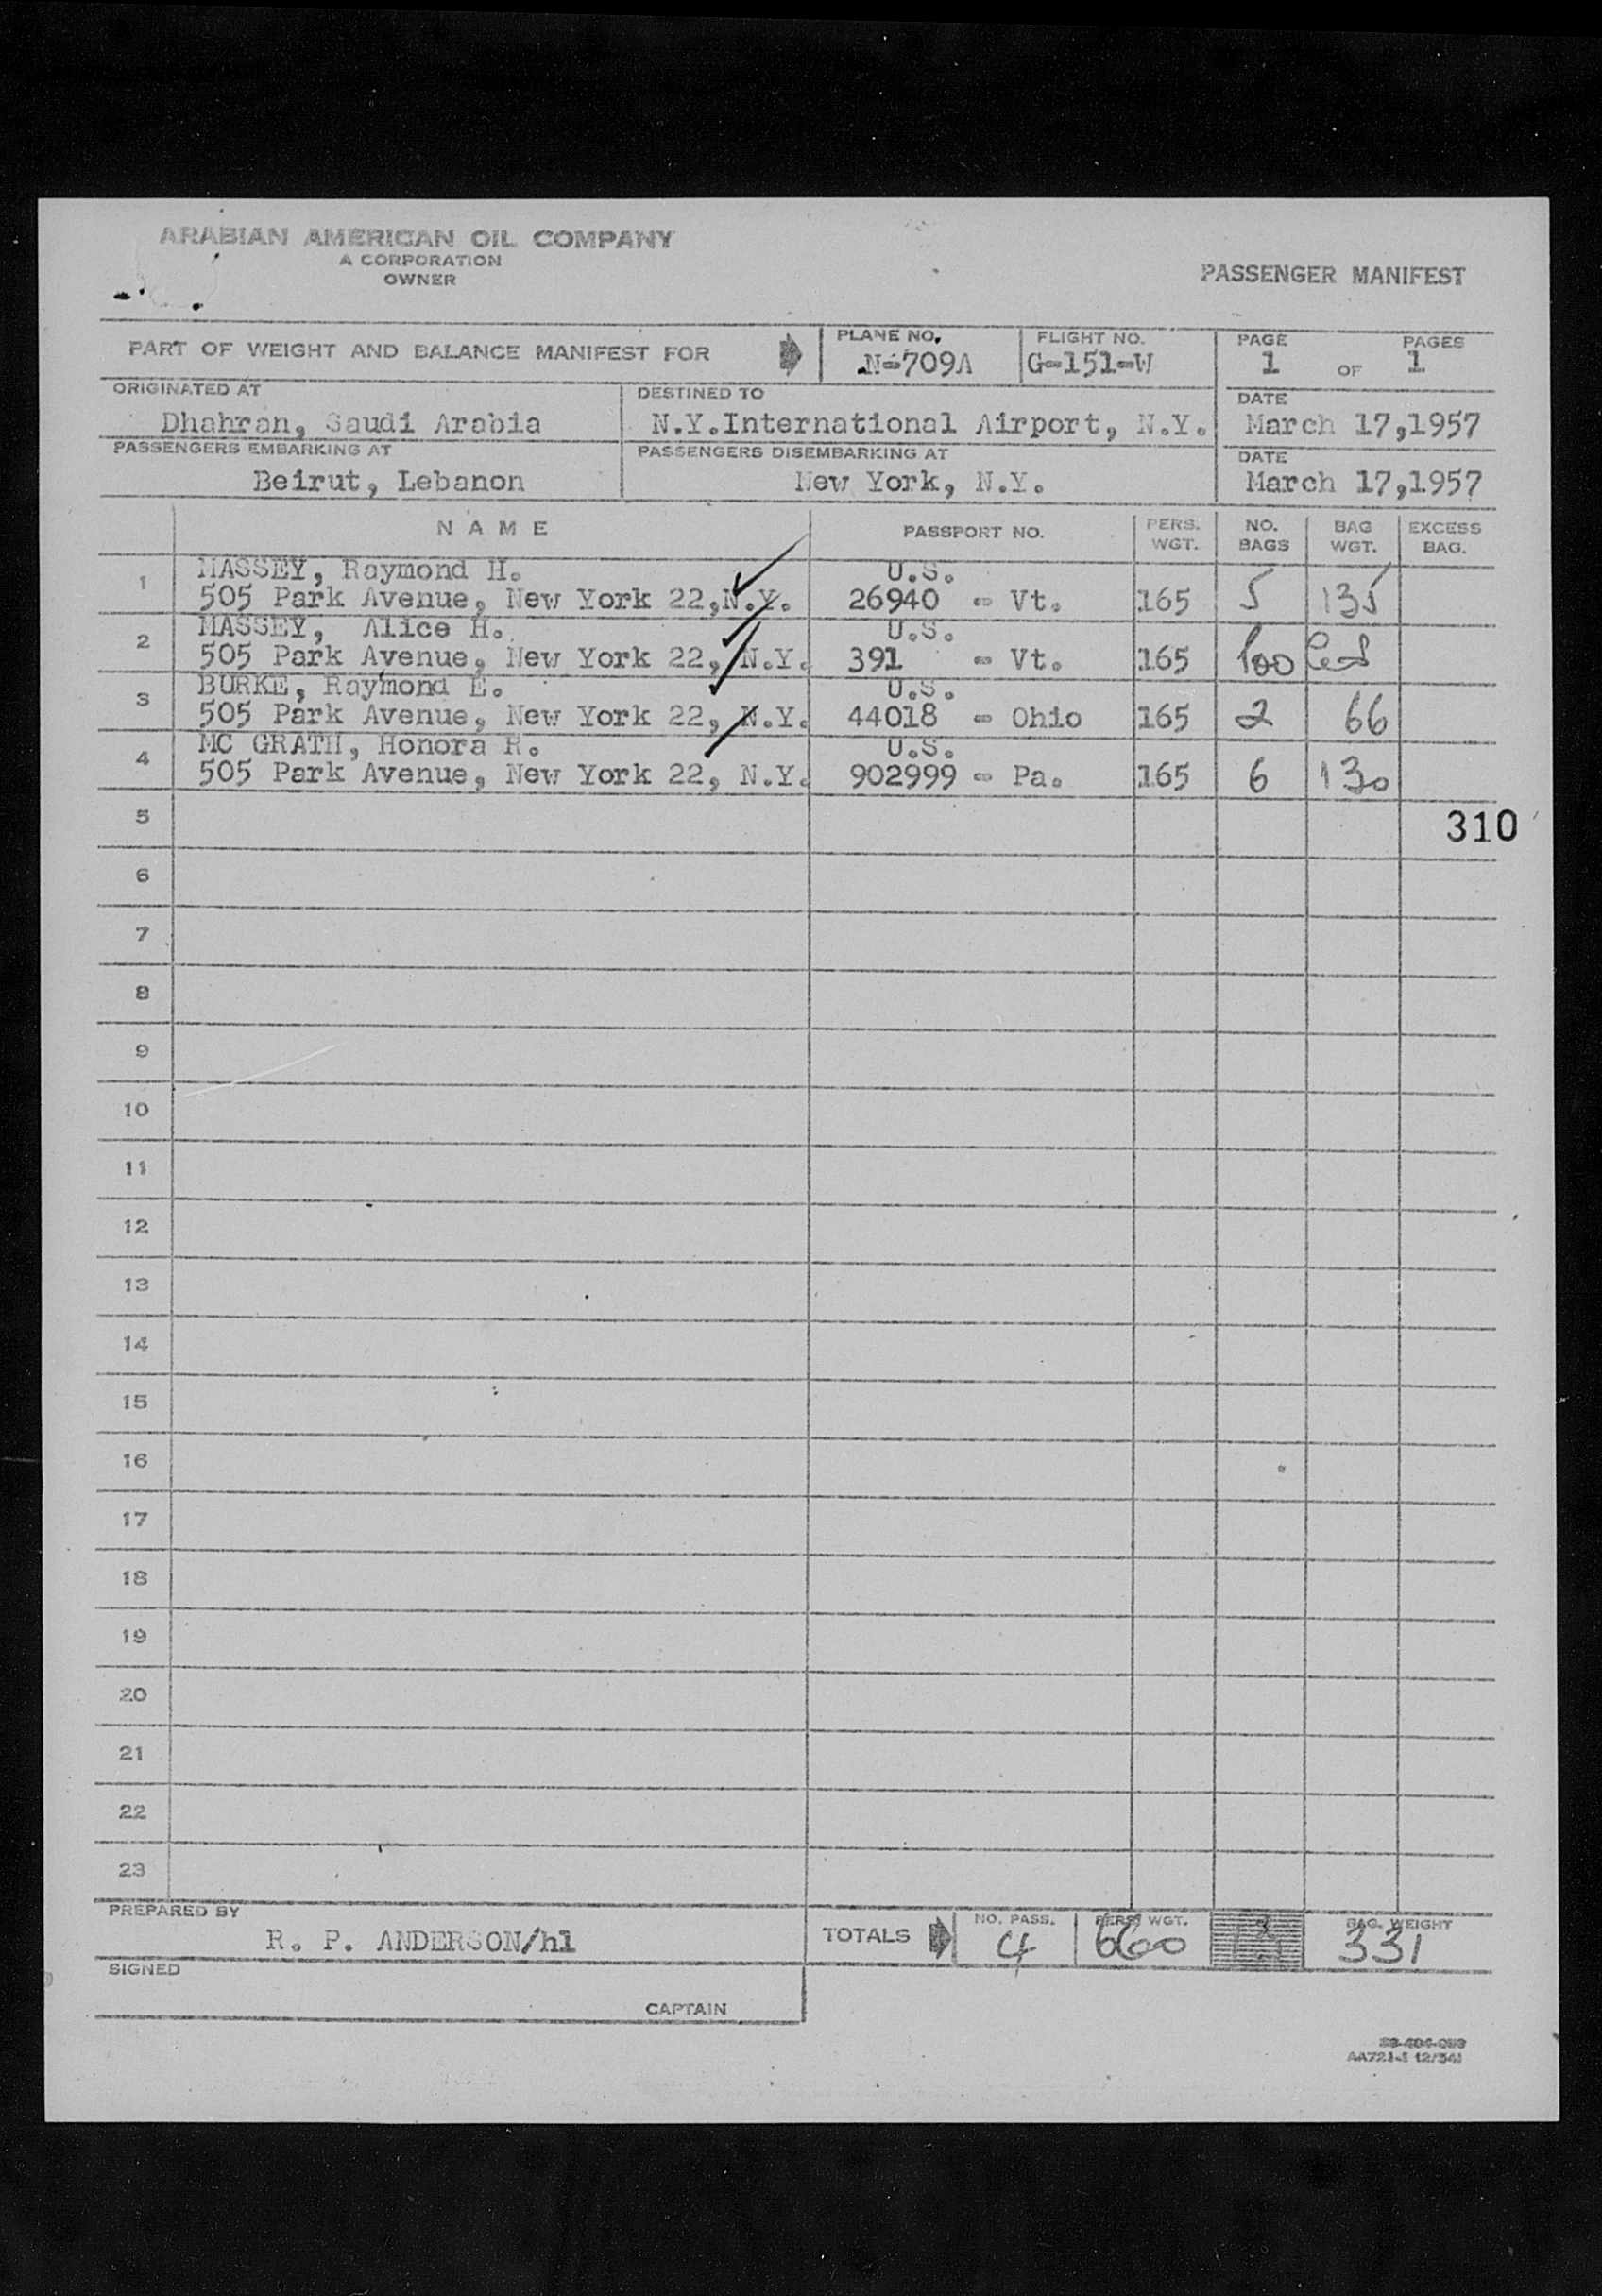 ARABIAN AMERICAN OIL COMPANY
A CORPORATION
OWNER
PASSENGER MANIFEST
PART OF WEIGHT AND BALANCE MANIFEST FOR
PLANE NO. FLIGHT NO. PAGE PAGES
N-709A G-151-W 1 OF 1
ORIGINATED AT DESTINED TO DATE
Dhahran, Saudi Arabia N.Y.International Airport, N.Y. March 17,1957
PASSENGERS EMBARKING AT PASSENGERS DISEMBARKING AT DATE
Beirut, Lebanon New York, N.Y. March 17,1957
NAME PASSPORT NO. PERS. WGT. NO. BAGS BAG WGT. EXCESS BAG.
1 MASSEY, Raymond H. U.S.
505 Park Avenue, New York 22,N.Y. 26940 - Vt. 165 5 135
2 MASSEY, Alice H. U.S.
505 Park Avenue, New York 22, N.Y. 391 - Vt. 165
3 BURKE, Raymond E. U.S.
505 Park Avenue, New York 22, N.Y. 44018 - Ohio 165 2 66
4 MC GRATH, Honora R. U.S.
505 Park Avenue, New York 22, N.Y. 902999 - Pa. 165 6 130
5 310
6
7
8
9
10
11
12
13
14
15
16
17
18
19
20
21
22
23
PREPARED BY
R. P. ANDERSON/hl
TOTALS NO. PASS. PERS. WGT. BAG. WEIGHT
4 660 13 331
SIGNED
CAPTAIN